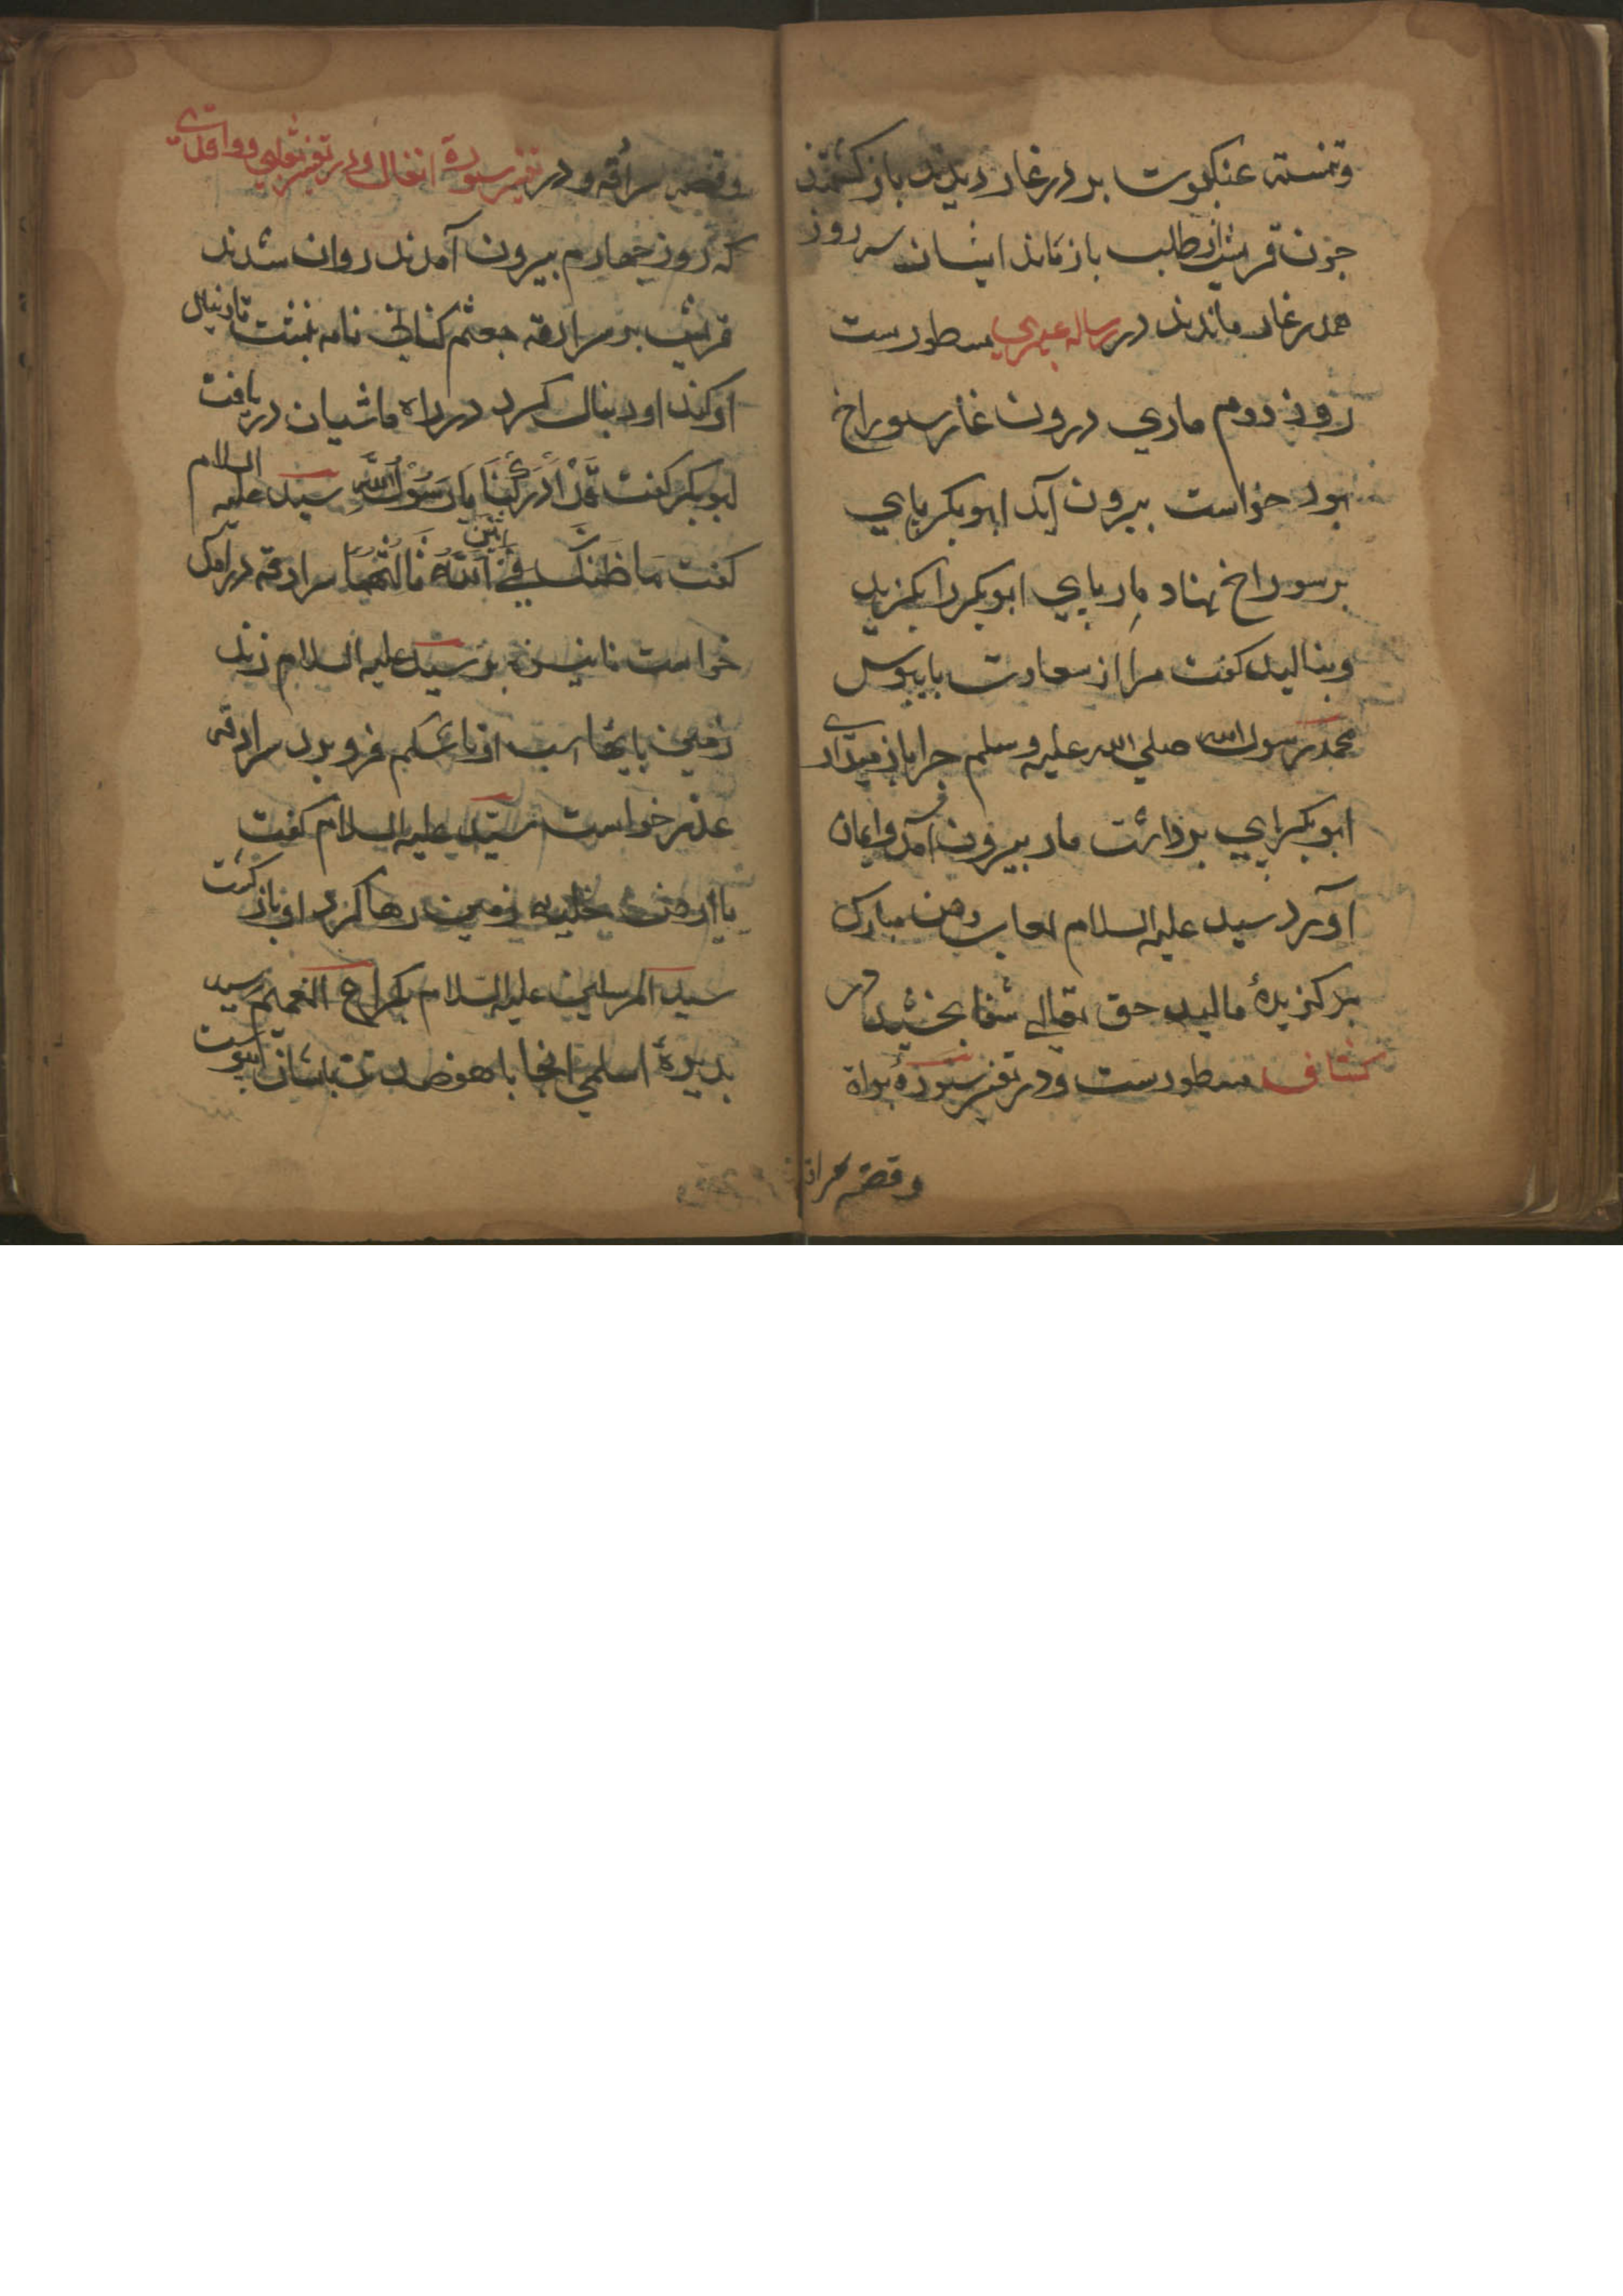 وتنسته عنکبوت بر در غار دیدند باز کشتند
چون قریش از طلب باز ماند ایشان سه روز
همدر غار ماندند در رساله مسطورست
روز دوم ماری درون غار سوراخ
بود خواست بیرون آید ابوبکر پای
بر سوراخ نهاد مار پای ابوبکر را بکزید
وبنالید کفت مرا از سعادت پایبوس
محمد رسول الله صلی الله علیه وسلم چرا باز میداری
ابوبکر پای برداشت مار بیرون آمد وایمان
آورد سید علیه السلام لعاب دهن مبارک
بر کزیدۀ مالید حق تعالی شفا بخشید در
کشاف مسطورست ودر تفسیر سورۀ براة
وقصه سراقه
وقصه سراقه ودر تفسیر سورة انفال ودر تفسیر ثعلبی وواقدی
که روز چهارم بیرون آمدند روان شدند
قریش بر سراقه جعثم کنانی نامه نبشت تا دنبال
او کند او دنبال کرد در راه ماشیان دریافت
ابوبکر کفت قَدْ اَدْرَكَنَا یَا رَسُوْلَ اللّٰهِ سید علیه السلام
کفت مَا ظَنُّکَ فِی اثنین اَللّٰهُ ثَالِثُهُمَا سراقه درآمد
خواست تا نیزه بر سید علیه السلام زند
زمین پایهاء اسب او تا شکم فرو برد سراقه
عذر خواست سید علیه السلام کفت
یا ارض خلیه زمین رها کرد او باز کشت
سید المرسلین علیه السلام بکراع الغمیم رسید
بریدۀ اسلمی انجا با هفصد تن بایشان پیوست